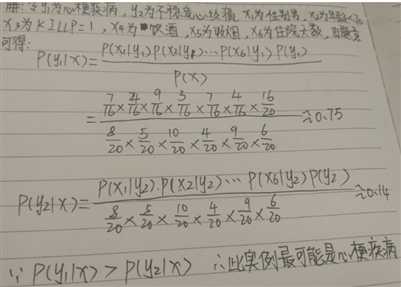 解:令y₁为心梗疾病,y₂为不稳定心绞痛,x₁为性别男,x₂为年龄
x₃为KILLP=1,x₄为饮酒,x₅为吸烟,x₆为住院天数,
可得:
P(y₁|x) = P(x₁|y₁)P(x₂|y₁)…P(x₆|y₁)P(y₁) / P(x)
= 7/16 × 4/16 × 9/16 × 3/16 × 7/16 × 4/16 × 16/20 / 8/20 × 5/20 × 10/20 × 4/20 × 9/20 × 6/20 ≈ 0.75
P(y₂|x) = P(x₁|y₂)·P(x₂|y₂)…P(x₆|y₂)P(y₂) / 8/20 × 5/20 × 10/20 × 4/20 × 9/20 × 6/20 ≈ 0.14
∵ P(y₁|x) > P(y₂|x) ∴此实例最可能是心梗疾病